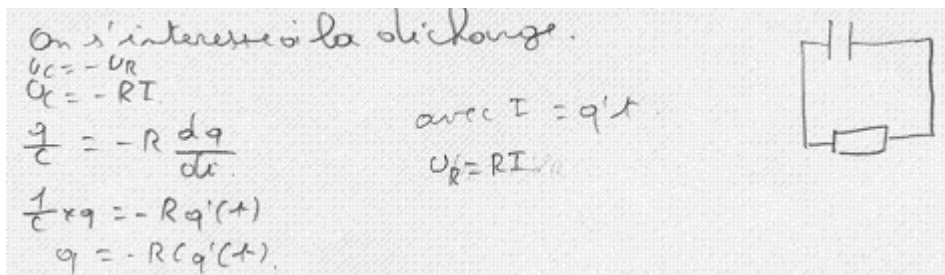 On s'interesse à la dicharge.
UC = - UR
UC = - RI
q/C = - R dq/dt
avec I = q't
UR = RI
1/C × q = - R q'(t)
q = - RC q'(t).